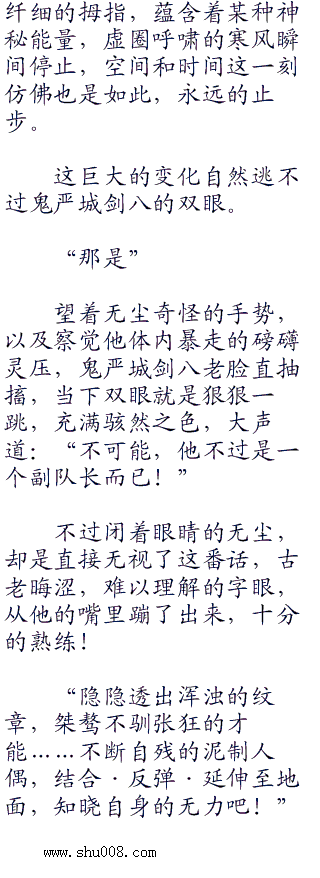 纤细的拇指，蕴含着某种神
秘能量，虚圈呼啸的寒风瞬
间停止，空间和时间这一刻
仿佛也是如此，永远的止
步。
这巨大的变化自然逃不
过鬼严城剑八的双眼。
“那是”
望着无尘奇怪的手势，
以及察觉他体内暴走的磅礴
灵压，鬼严城剑八老脸直抽
搐，当下双眼就是狠狠一
跳，充满骇然之色，大声
道：“不可能，他不过是一
个副队长而已！”
不过闭着眼睛的无尘，
却是直接无视了这番话，古
老晦涩，难以理解的字眼，
从他的嘴里蹦了出来，十分
的熟练！
“隐隐透出浑浊的纹
章，桀骜不驯张狂的才
能……不断自残的泥制人
偶，结合·反弹·延伸至地
面，知晓自身的无力吧！”
www.shu008.com